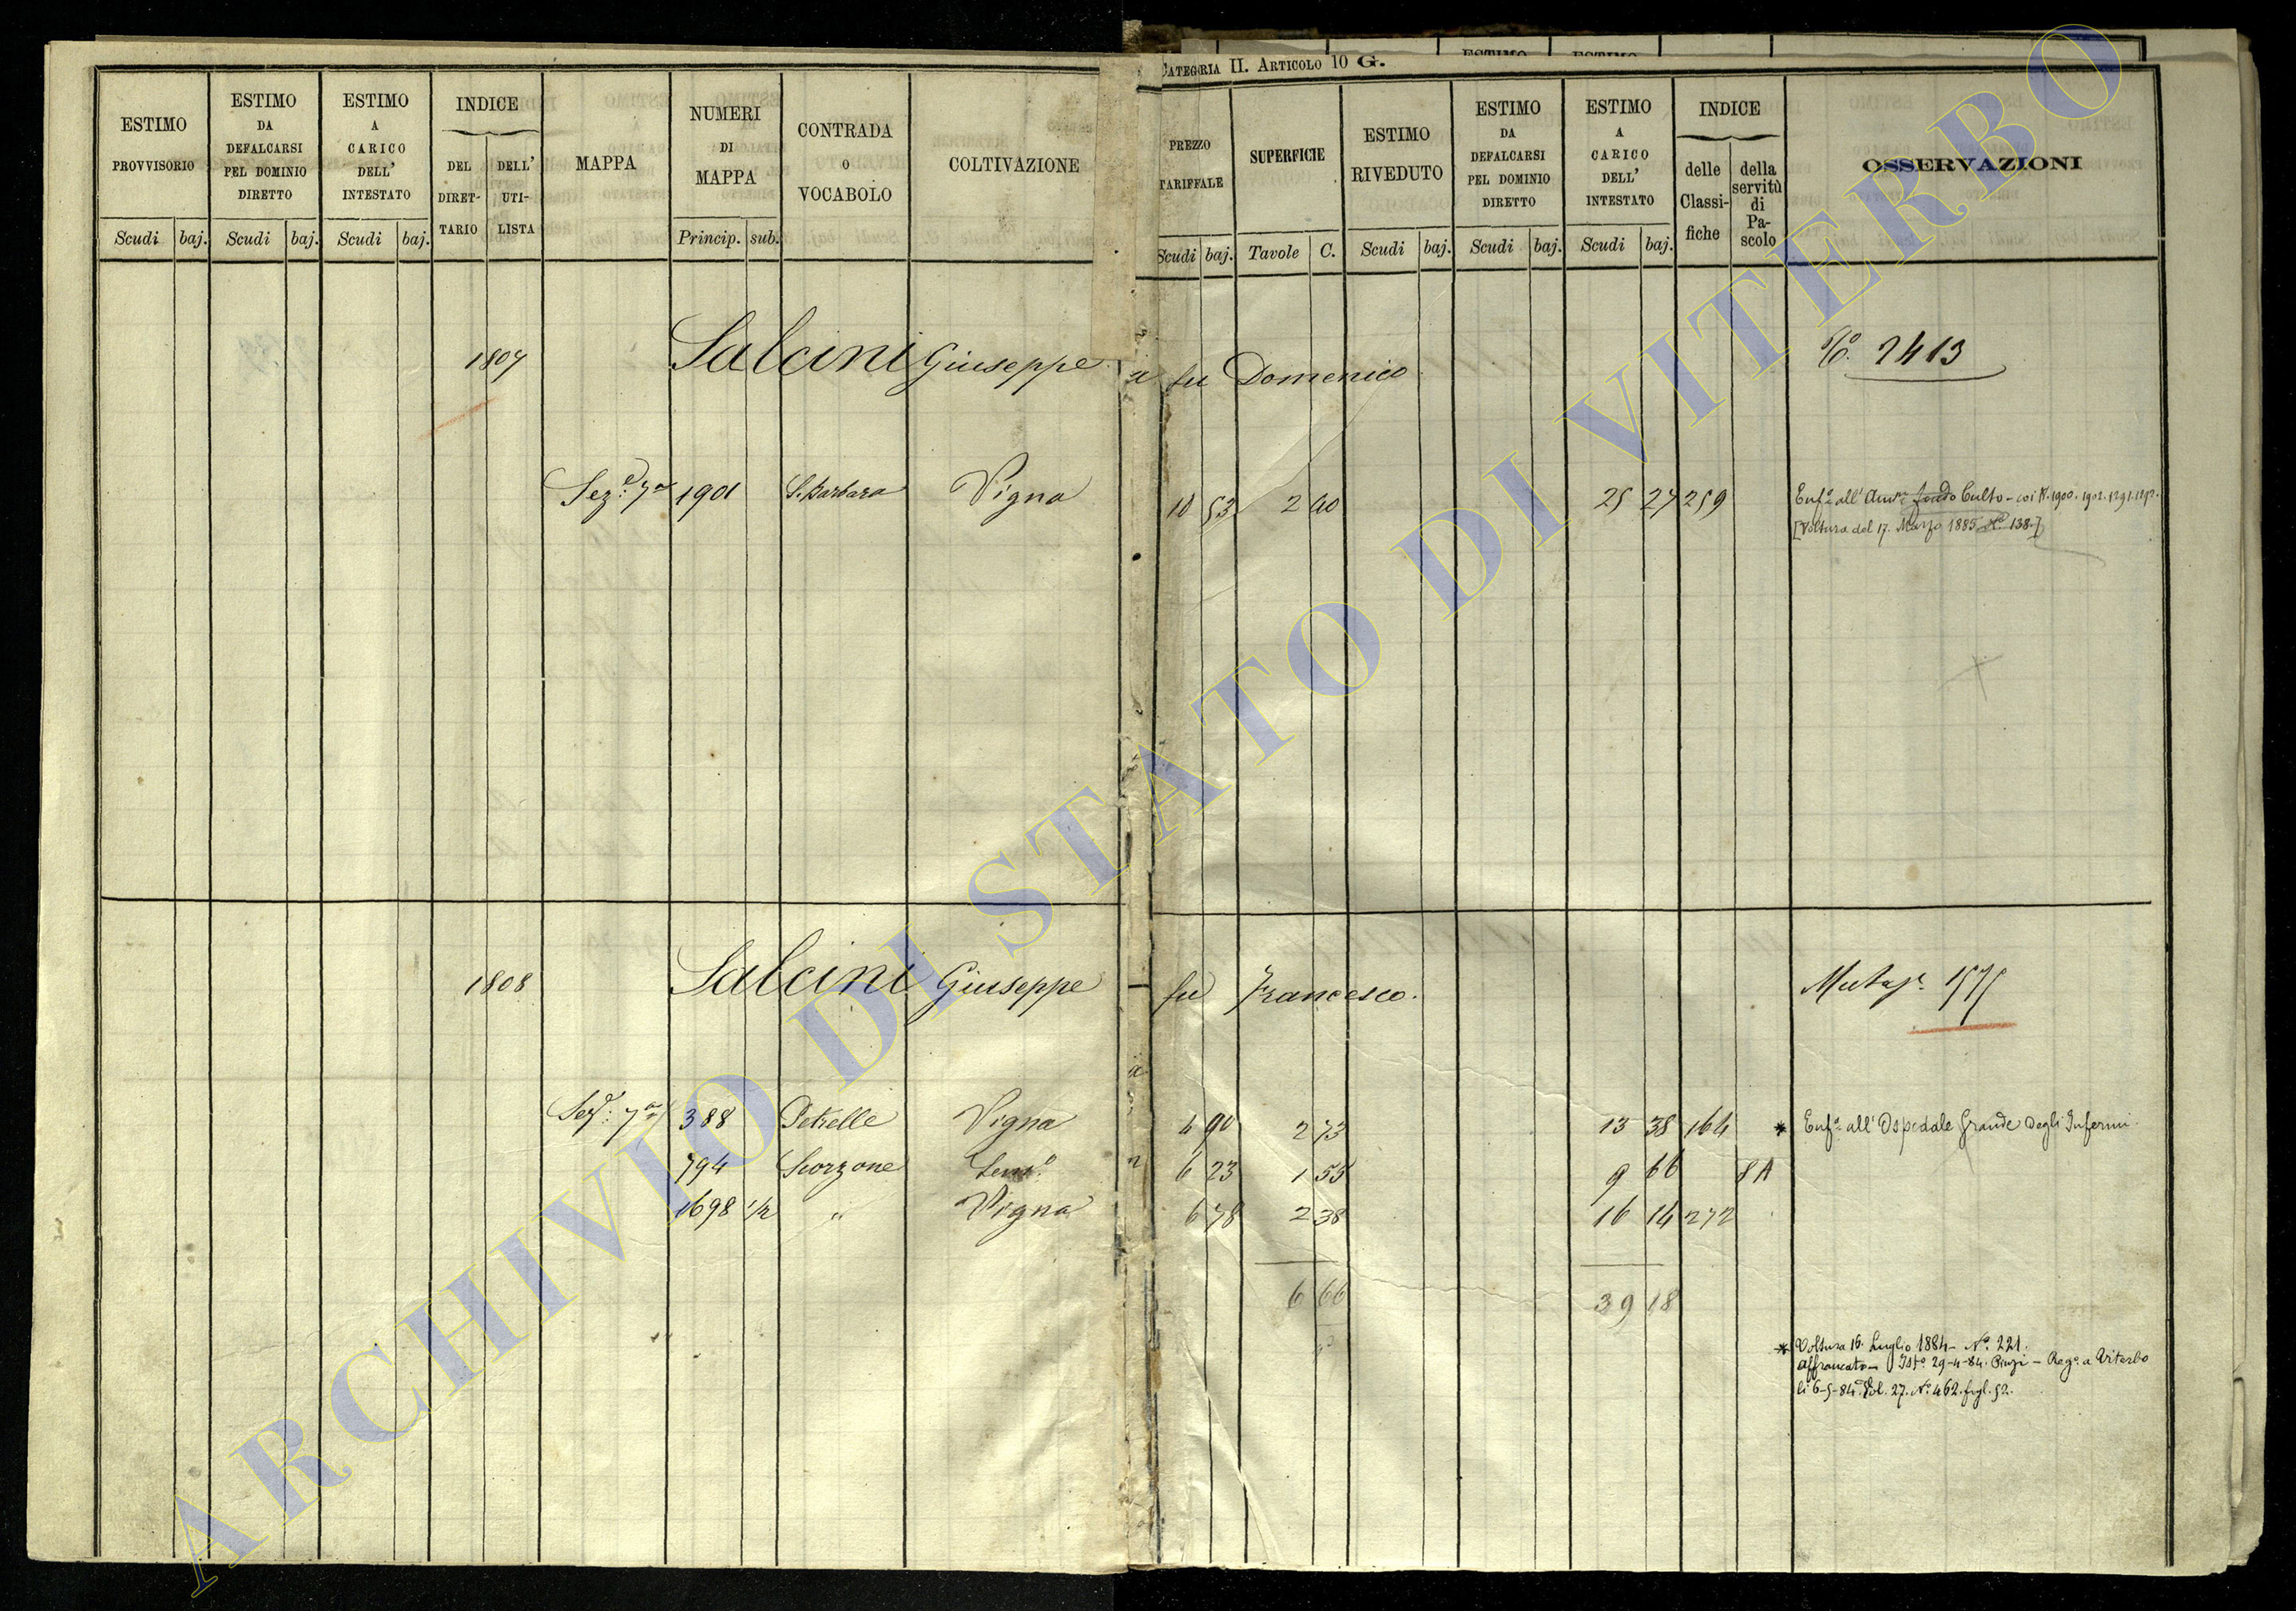 CATEGORIA II. ARTICOLO 10 G.
ESTIMO PROVVISORIO
Scudi baj.
ESTIMO DA DEFALCARSI PEL DOMINIO DIRETTO
Scudi baj.
ESTIMO A CARICO DELL' INTESTATO
Scudi baj.
INDICE
DEL DIRET-TARIO
DELL' UTI-LISTA
MAPPA
NUMERI DI MAPPA
Princip. sub.
CONTRADA O VOCABOLO
COLTIVAZIONE
PREZZO TARIFFALE
Scudi baj.
SUPERFICIE
Tavole C.
ESTIMO RIVEDUTO
Scudi baj.
ESTIMO DA DEFALCARSI PEL DOMINIO DIRETTO
Scudi baj.
ESTIMO A CARICO DELL' INTESTATO
Scudi baj.
INDICE
delle Classi-fiche
della servitù di Pa-scolo
OSSERVAZIONI
1807 Salcini Giuseppe fu Domenico 2413
Sez.e 7a 1901 S. Barbara Vigna 10 53 2 40 25 27 259 Enf.a all' Amm.e fondo Culto - coi N. 1900. 1902.
[Voltura del 17. Marzo 1885 N.o 138.]
1808 Salcini Giuseppe - fu Francesco. 1575
Sez.e: 7a 388 Petrelle Vigna 4 90 2 73 13 38 164 * Enf.a all' Ospedale Grande degli Infermi.
794 Scorzone Sem.o 6 23 1 55 9 66 8A
1698 1/2 " Vigna 6 78 2 38 16 14 272
6 66 39 18
* Voltura 16. Luglio 1884 - N.o 221.
Affrancato - Ist.o 29-4-84. - Reg.o a Viterbo
li 6-5-84. Vol. 27. N.o 462. fogl. 52.
ARCHIVIO DI STATO DI VITERBO